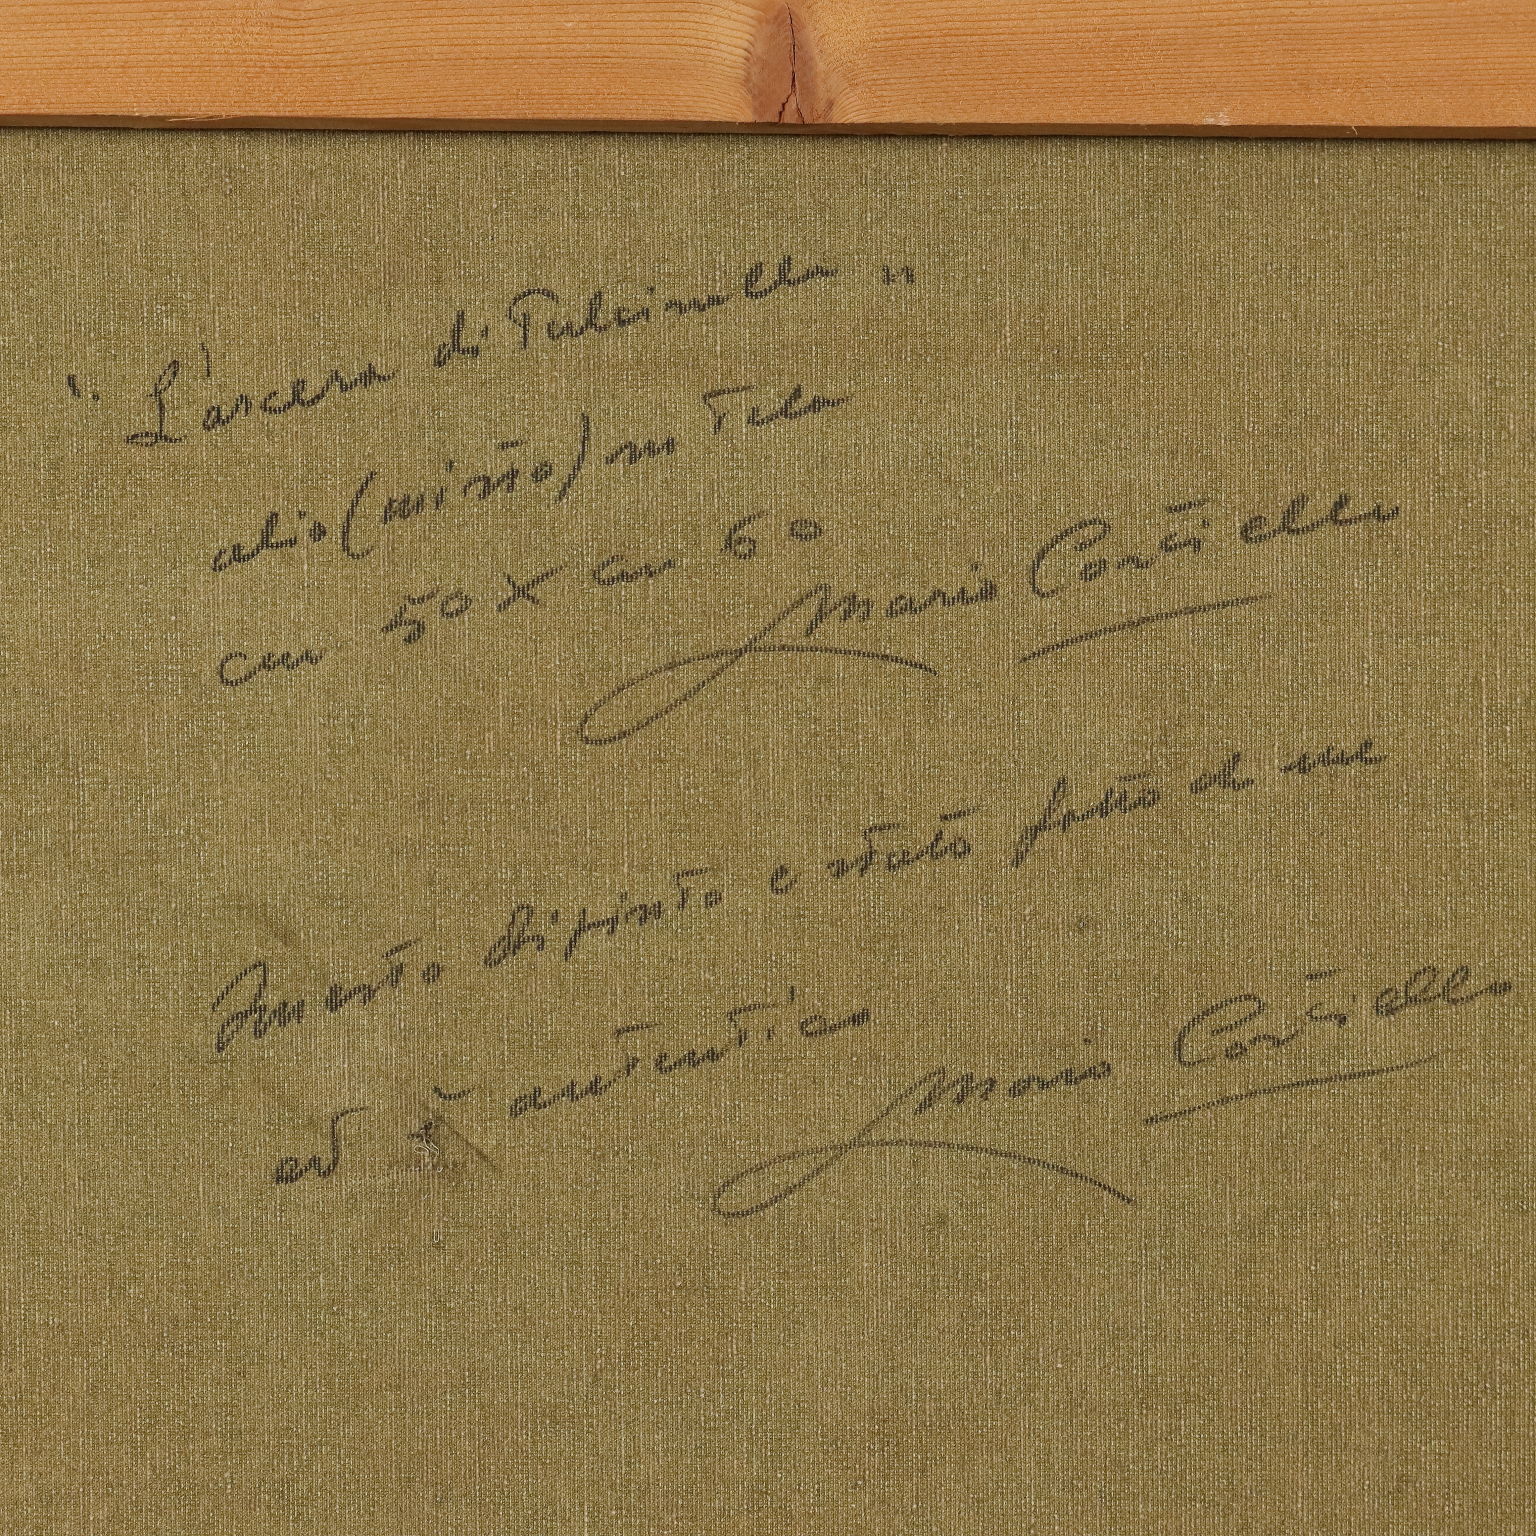 "L'ascesa di Pulcinella"
olio (misto) su tela
cm 50 x cm 60
Mario Cortiello
Questo dipinto e stato fatto da me
ed è autentico
Mario Cortiello